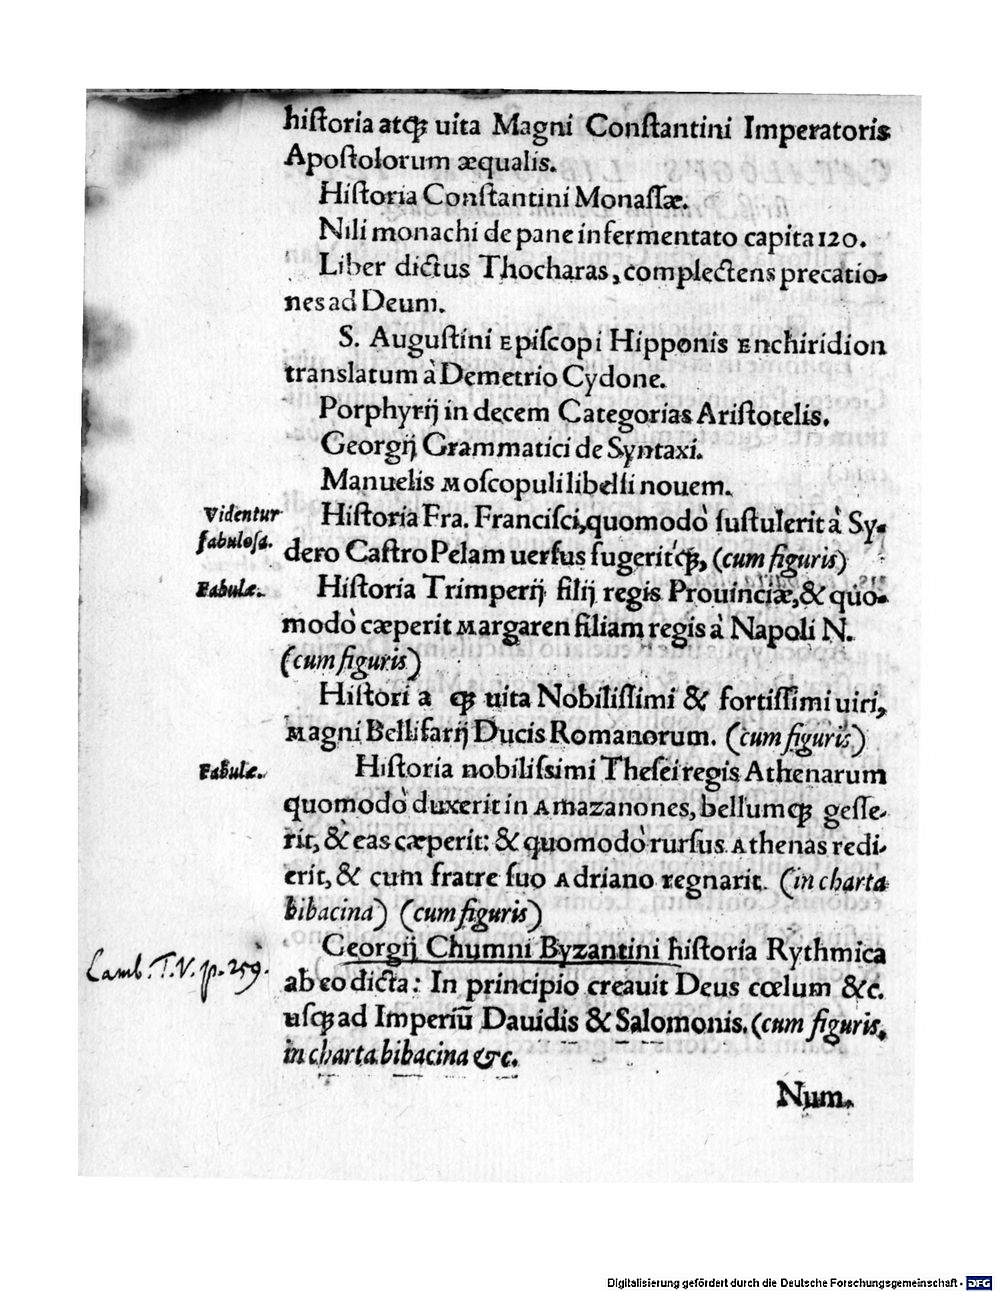 hiſtoria atqꝫ uita Magni Conſtantini Imperatoris
Apoſtolorum æqualis.
Hiſtoria Conſtantini Monaſſæ.
Nili monachi de pane infermentato capita 120.
Liber dictus Thocharas, complectens precatio-
nes ad Deum.
S. Auguſtini Epiſcopi Hipponis Enchiridion
translatum à Demetrio Cydone.
Porphyrij in decem Categorias Ariſtotelis.
Georgij Grammatici de Syntaxi.
Manuelis Moſcopuli libelli nouem.
Videntur
fabuloſa.
Hiſtoria Fra. Franciſci, quomodò ſuſtulerit à Sy-
dero Caſtro Pelam uerſus fugeritqꝫ, (cum figuris)
Fabulæ.
Hiſtoria Trimperij filij regis Prouinciæ, & quo-
modò cæperit Margaren filiam regis à Napoli N.
(cum figuris)
Hiſtoria qꝫ uita Nobiliſſimi & fortiſſimi uiri,
Magni Belliſarij Ducis Romanorum. (cum figuris)
Fabulæ.
Hiſtoria nobiliſsimi Theſei regis Athenarum
quomodò duxerit in Amazanones, bellumqꝫ geſſe-
rit, & eas cæperit: & quomodò rurſus Athenas redi-
erit, & cum fratre ſuo Adriano regnarit. (in charta
bibacina) (cum figuris)
Lamb. T. V. p. 259.
Georgij Chumni Byzantini hiſtoria Rythmica
ab eo dicta: In principio creauit Deus cœlum &c.
uſqꝫ ad Imperiū Dauidis & Salomonis. (cum figuris,
in charta bibacina &c.
Num.
Digitalisierung gefördert durch die Deutsche Forschungsgemeinschaft - DFG